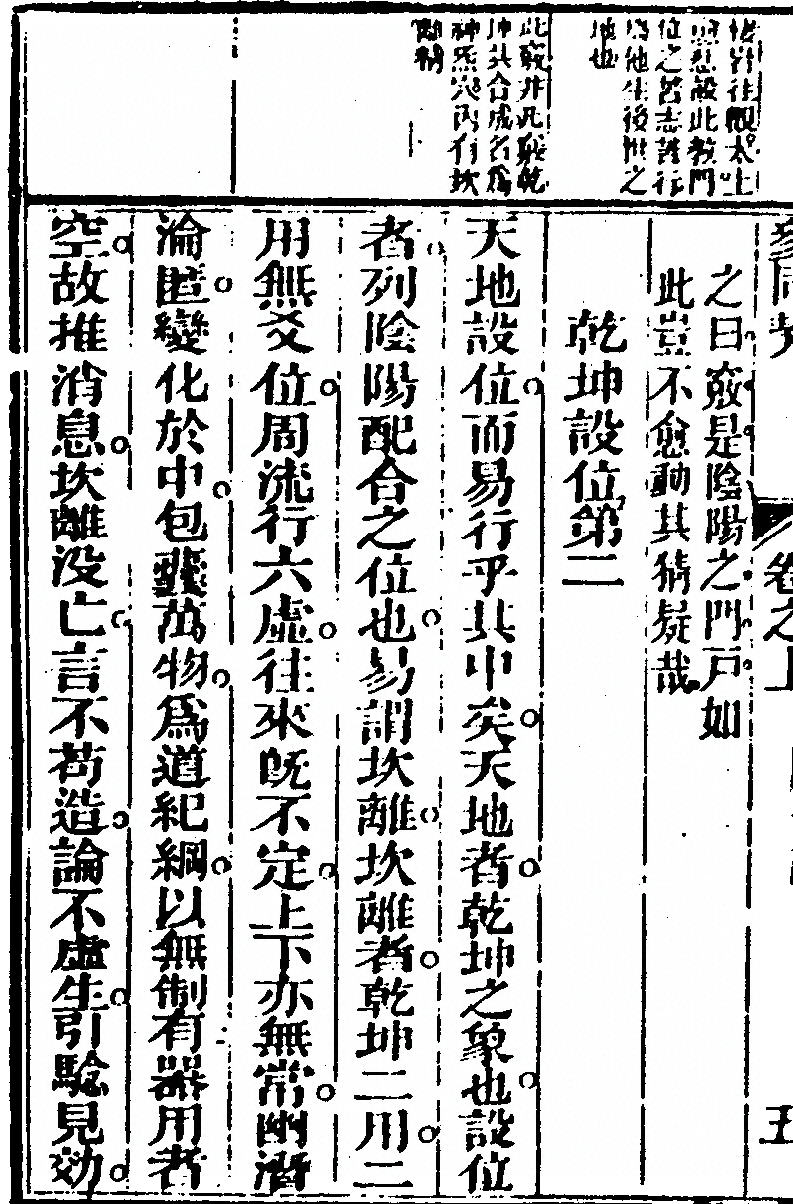 往觀太上
設此教門
後世之
地也
此竅非凡竅乾
坤共合成名爲
神炁穴內有坎
離精
卷之上 五
之曰竅是陰陽之門戸如
此豈不愈動其猜疑哉
乾坤設位第二
天地設位而易行乎其中矣天地者乾坤之象也設位
者列陰陽配合之位也易謂坎離坎離者乾坤二用二
用無爻位周流行六虛往來旣不定上下亦無常幽潛
淪匿變化於中包囊萬物爲道紀綱以無制有器用者
空故推消息坎離没亡言不苟造論不虛生引騐見効